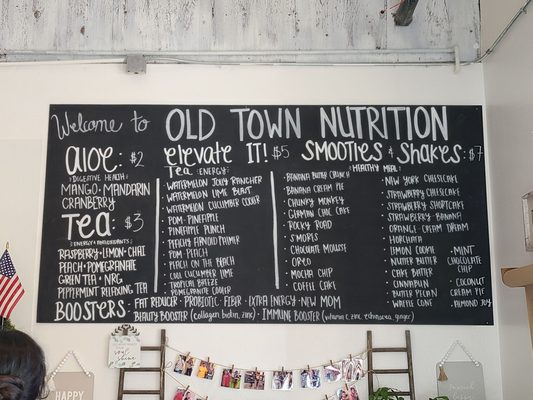 Welcome to OLD TOWN NUTRITION
aloe: $2
DIGESTIVE HEALTH:
MANGO · MANDARIN
CRANBERRY
TEA: $3
ENERGY & ANTIOXIDANTS:
RASPBERRY · LEMON · CHAI
PEACH · POMEGRANATE
GREEN TEA + NRG
PEPPERMINT RELAXING TEA
elevate IT! $5
TEA: ENERGY:
· WATERMELON JOLLY RANCHER
· WATERMELON LIME BURST
· WATERMELON CUCUMBER COOLER
· POM-PINEAPPLE
· PINEAPPLE PUNCH
· PEACHY ARNOLD PALMER
· POM PEACH
· PEACH ON THE BEACH
· COOL CUCUMBER LIME
· TROPICAL BREEZE
· POMEGRANATE COOLER
SMOOTIES & SHAKES: $7
HEALTHY MEAL:
· BANANA BUTTER CRUNCH
· BANANA CREAM PIE
· CHUNKY MONKEY
· GERMAN CHOC CAKE
· ROCKY ROAD
· S'MORES
· CHOCOLATE MOUSSE
· OREO
· MOCHA CHIP
· COFFEE CAKE
· NEW YORK CHEESECAKE
· STRAWBERRY CHEESECAKE
· STRAWBERRY SHORTCAKE
· STRAWBERRY BANANA
· ORANGE CREAM DREAM
· HORCHATA
· LEMON CREME
· NUTTER BUTTER
· CAKE BATTER
· CINNABUN
· BUTTER PECAN
· WAFFLE CONE
· MINT
CHOCOLATE
CHIP
· COCONUT
CREAM PIE
· ALMOND JOY
BOOSTERS: · FAT REDUCER · PROBIOTIC · FIBER · EXTRA ENERGY · NEW MOM
· BEAUTY BOOSTER (collagen, biotin, zinc) · IMMUNE BOOSTER (vitamin c, zinc, echinacea, ginger)
HAPPY